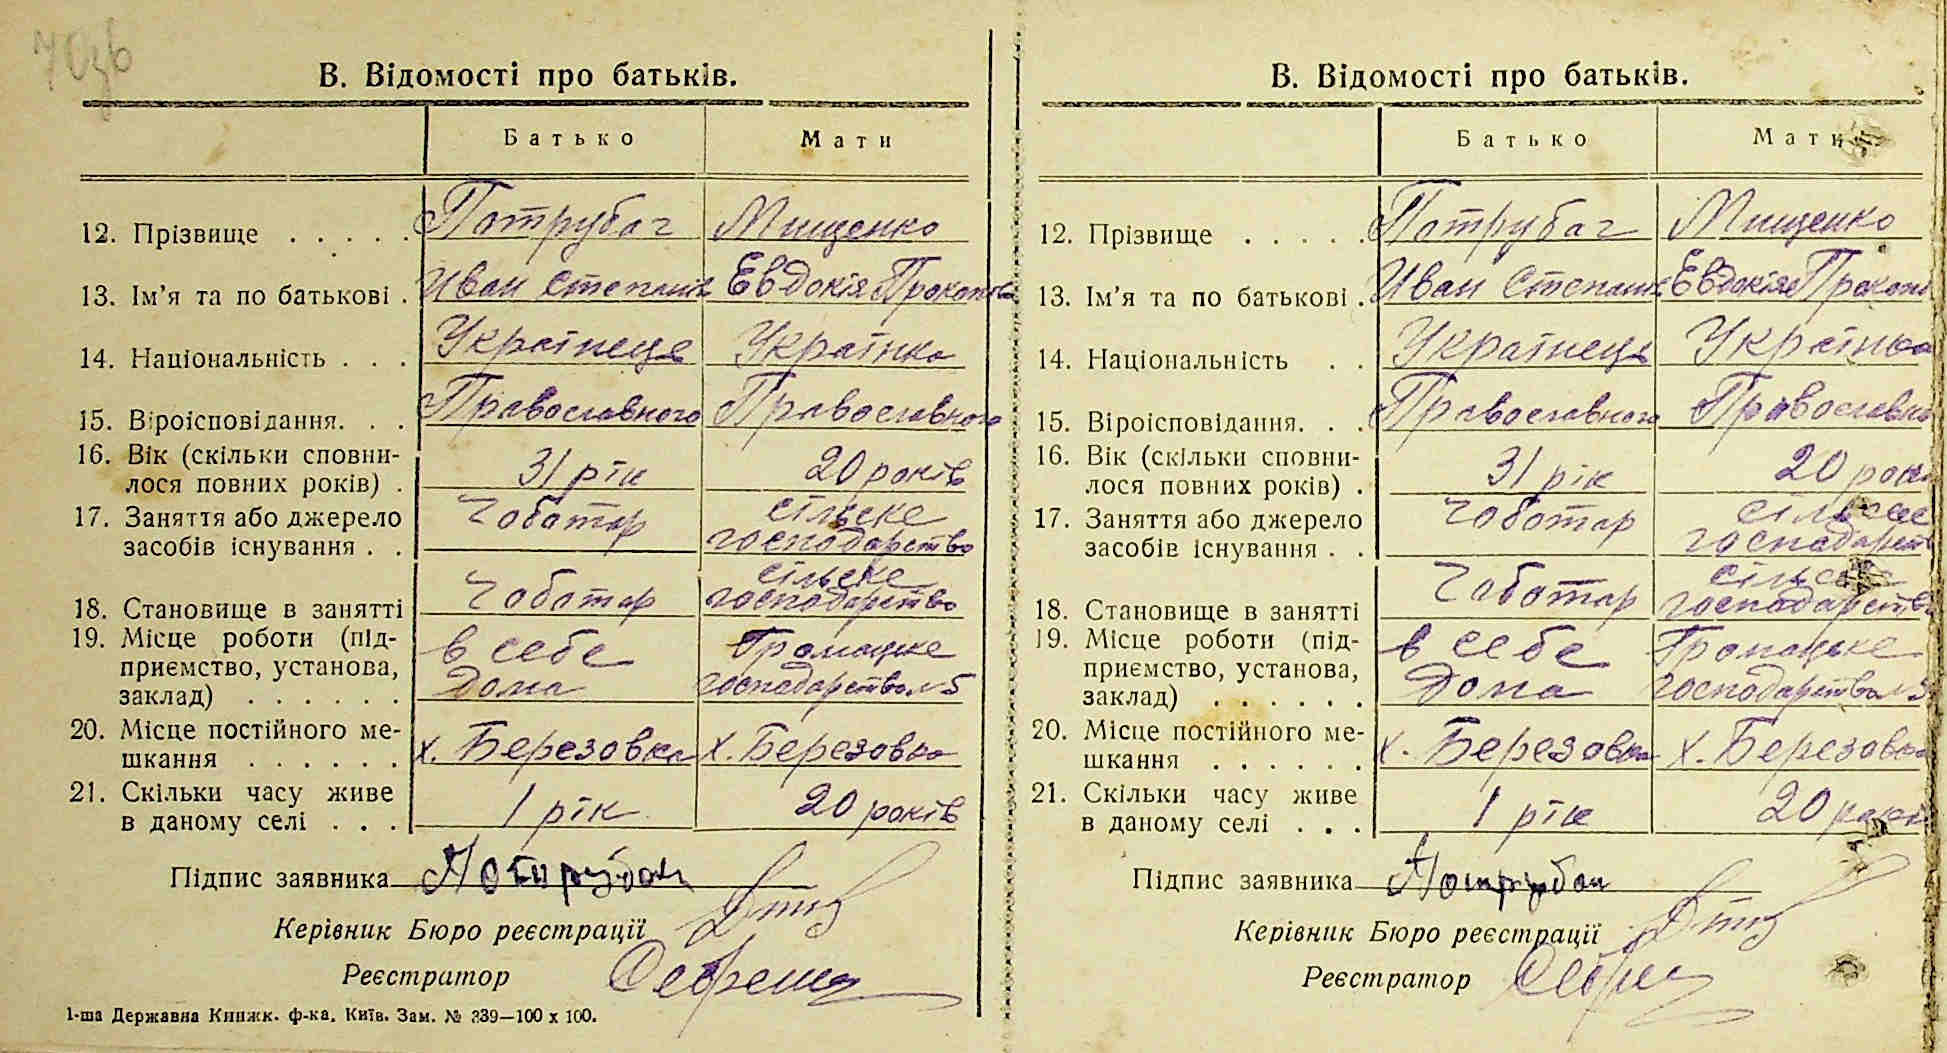 В. Відомості про батьків.
Батько Мати
12. Прізвище . . . . . Потрубач Мищенко
13. Ім'я та по батькові . Иван Степанів Евдокія Прокопова
14. Національність . . . Українець Українка
15. Віроісповідання. . . Православного Православного
16. Вік (скільки сповни-
лося повних років) . 31 рік 20 років
17. Заняття або джерело
засобів існування . . Чоботар сільске господарство
18. Становище в занятті Чоботар сільске господарство
19. Місце роботи (під-
приємство, установа,
заклад) . . . . . . в себе дома Громацке господарство №5
20. Місце постійного ме-
шкання . . . . . . х. Березовка х. Березовка
21. Скільки часу живе
в даному селі . . . 1 рік 20 років
Підпис заявника Потрубач
Керівник Бюро реєстрації
Реєстратор
1-ша Державна Книжк. ф-ка, Київ. Зам. № 339—100 х 100.
В. Відомості про батьків.
Батько Мати
12. Прізвище . . . . . Потрубач Мищенко
13. Ім'я та по батькові . Иван Степанів Евдокія Прокопо
14. Національність . . Українець Українка
15. Віроісповідання. . . Православного Православно
16. Вік (скільки сповни-
лося повних років) . 31 рік 20 рок
17. Заняття або джерело
засобів існування . . Чоботар сільске господарст
18. Становище в занятті Чоботар сільске господарств
19. Місце роботи (під-
приємство, установа,
заклад) . . . . . . в себе дома Громацке господарство №5
20. Місце постійного ме-
шкання . . . . . . х. Березовка х. Березовка
21. Скільки часу живе
в даному селі . . . 1 рік 20 рокі
Підпис заявника Потрубач
Керівник Бюро реєстрації
Реєстратор